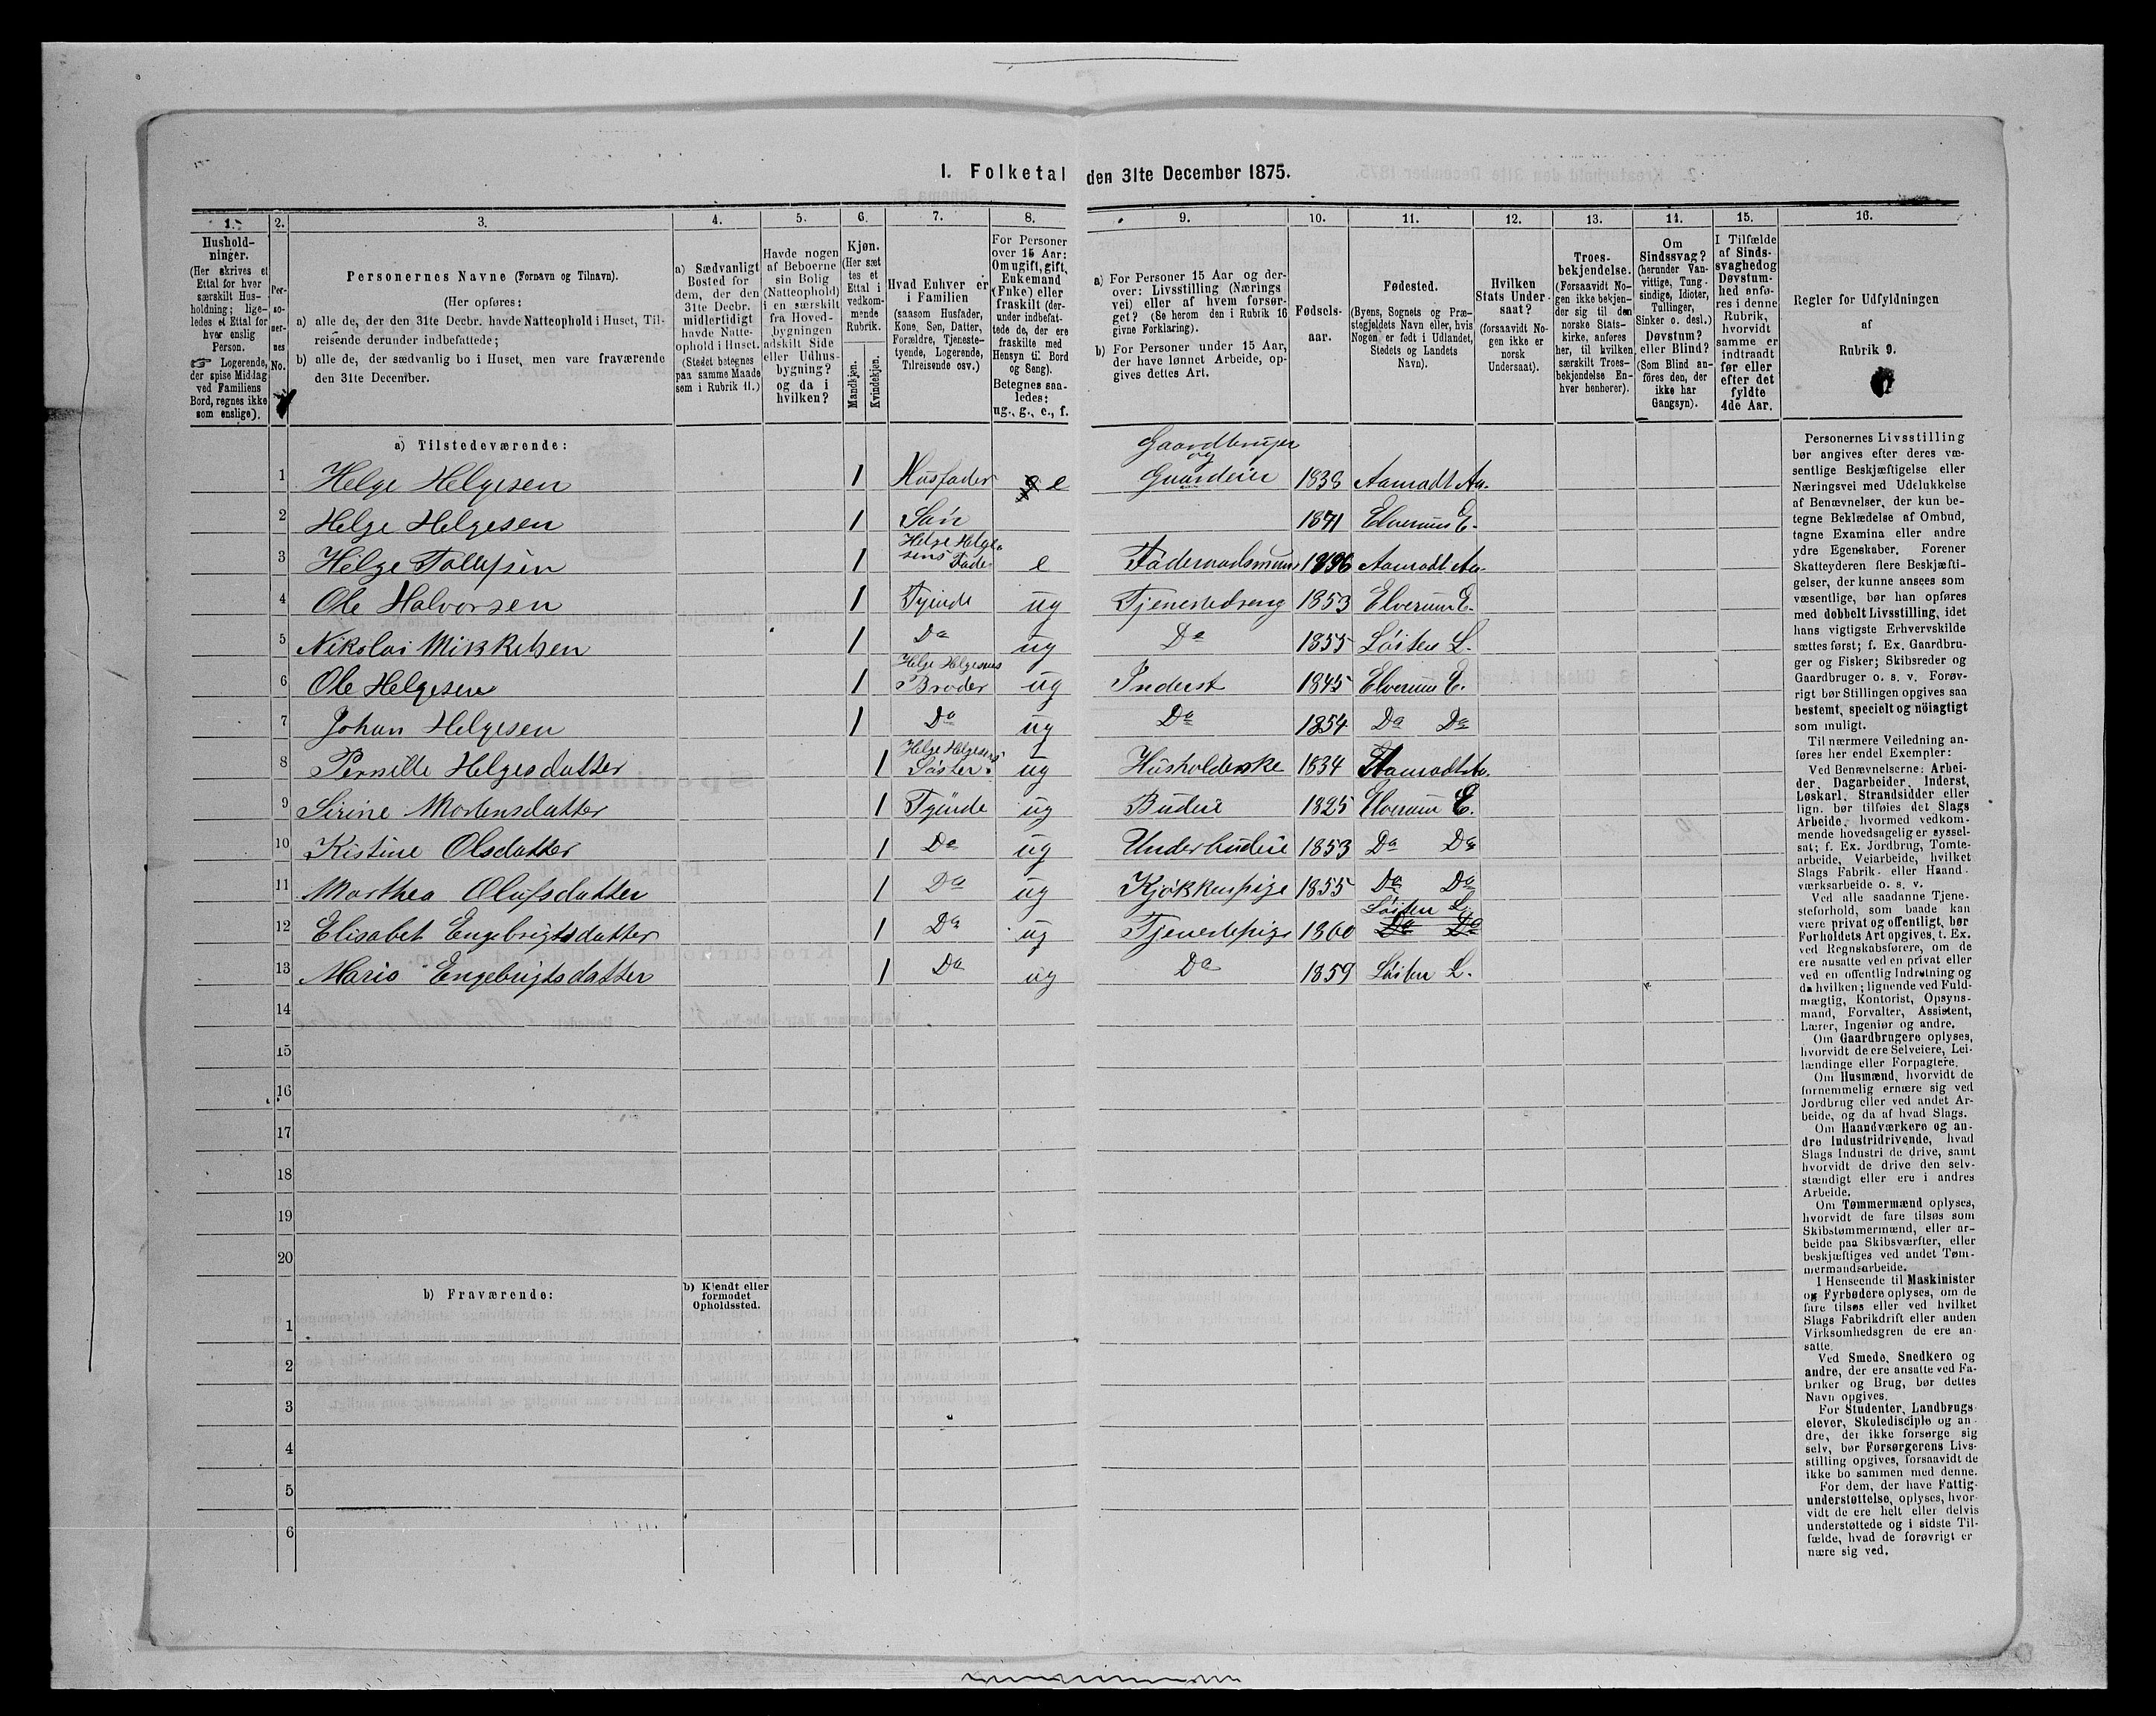 I. Folketal den 31te December 1875.
1. 2. 3. 4. 5. 6. 7. 8. 9. 10. 11. 12. 13. 14. 15. 16.
Hushold-
ninger.
(Her skrives et
Ettal for hver
særskilt Hus-
holdning; lige-
ledes et Ettal for
hver enslig
Person.
☞ Logerende,
der spise Middag
ved Familiens
Bord, regnes ikke
som enslige).
Per-
so-
ner-
nes
No.
Personernes Navne (Fornavn og Tilnavn).
(Her opføres:
a) alle de, der den 31te Decbr. havde Natteophold i Huset, Til-
reisende derunder indbefattede;
b) alle de, der sædvanlig bo i Huset, men vare fraværende
den 31te December.
a) Sædvanligt
Bosted for
dem, der den
31te Decbr.
midlertidigt
havde Natte-
ophold i Huset.
(Stedet betegnes
paa samme Maade
som i Rubrik 11.)
Havde nogen
af Beboerne
sin Bolig
(Natteophold)
i en særskilt
fra Hoved-
bygningen
adskilt Side
eller Udhus-
bygning?
og da i
hvilken?
Kjøn.
(Her sæt
tes et
Ettal i
vedkom-
mende
Rubrik.
Mandkjøn.
Kvindekjøn.
Hvad Enhver er
i Familien
(saasom Husfader,
Kone, Søn, Datter,
Forældre, Tjeneste-
tyende, Logerende,
Tilreisende osv.)
For Personer
over 15 Aar:
Om ugift, gift,
Enkemand
(Enke) eller
fraskilt (der-
under indbefat-
tede de, der ere
fraskilte med
Hensyn til Bord
og Seng).
Betegnes saa-
ledes:
ug., g., e., f.
a) For Personer 15 Aar og der-
over: Livsstilling (Nærings
vei) eller af hvem forsør-
get? (Se herom den i Rubrik 16
givne Forklaring).
b) For Personer under 15 Aar,
der have lønnet Arbeide, op-
gives dettes Art.
Fødsels-
aar.
Fødested.
(Byens, Sognets og Præ-
stegjeldets Navn eller, hvis
Nogen er født i Udlandet,
Stedets og Landets
Navn).
Hvilken
Stats Under-
saat?
(forsaavidt No-
gen ikke er
norsk
Undersaat).
Troes-
bekjendelse.
(Forsaavidt No-
gen ikke bekjen-
der sig til den
norske Stats-
kirke, anføres
her, til hvilken
særskilt Troes-
bekjendelse En-
hver henhører).
Om
Sindssvag?
(herunder Van-
vittige, Tung-
sindige, Idioter,
Tullinger,
Sinker o. desl.)
Døvstum?
eller Blind?
(Som Blind an-
føres den, der
ikke har
Gangsyn).
I Tilfælde
af Sinds-
svaghed og
Døvstum-
hed anfø-
res i denne
Rubrik,
hvorvidt
samme er
indtraadt
før eller
efter det
fyldte
4de Aar.
Regler for Udfyldningen
af
Rubrik 9.
a) Tilstedeværende:
Gaardbruger
og
1 Helge Helgesen 1 Husfader e Gaardeier 1838 Aamodt Aa.
2 Helge Helgesen 1 Søn 1871 Elverum E.
Helge Helge-
3 Helge Tollefsen 1 sens Fader e Føderaadsmand 1796 Aamodt Aa.
4 Ole Halvorsen 1 Tyende ug Tjenestedreng 1853 Elverum E.
5 Nikolai Mikkelsen 1 Do ug Do 1855 Løiten L.
Helge Helgesens
6 Ole Helgesen 1 Broder ug Inderst 1845 Elverum E.
7 Johan Helgesen 1 Do ug Do 1854 Do Do
Helge Helgesens
8 Pernille Helgesdatter 1 Søster ug Husholderske 1834 Aamodt Aa.
9 Sirine Mortensdatter 1 Tyende ug Budeie 1825 Elverum E.
10 Kistine Olsdatter 1 Do ug Underbudeie 1853 Do Do
11 Marthea Olufsdatter 1 Do ug Kjøkkenpige 1855 Do Do
Løiten L.
12 Elisabet Engebrigtsdatter 1 Do ug Tjenestepige 1860 Do Do
13 Maria Engebrigtsdatter 1 Do ug Do 1859 Løiten L.
14
15
16
17
18
19
20
b) Fraværende:
b) Kjendt eller
formodet
Opholdssted.
1
2
3
4
5
6
Personernes Livsstilling
bør angives efter deres væ-
sentlige Beskjæftigelse eller
Næringsvei med Udelukkelse
af Benævnelser, der kun be-
tegne Beklædelse af Ombud,
tagne Examina eller andre
ydre Egenskaber. Forener
Skatteyderen flere Beskjæfti-
gelser, der kunne ansees som
væsentlige, bør han opføres
med dobbelt Livsstilling, idet
hans vigtigste Erhvervskilde
sættes først; f. Ex. Gaardbru-
ger og Fisker; Skibsreder og
Gaardbruger o. s. v. Forøv-
rigt bør Stillingen opgives saa
bestemt, specielt og nöiagtigt
som muligt.
Til nærmere Veiledning an-
føres her endel Exempler:
Ved Benævnelserne: Arbei-
der, Dagarbeider, Inderst,
Løskarl, Strandsidder eller
lign. bør tilføies det Slags
Arbeide, hvormed vedkom-
mende hovedsagelig er syssel-
sat; f. Ex. Jordbrug, Tomte-
arbeide, Veiarbeide, hvilket
Slags Fabrik- eller Haand-
værksarbeide o. s. v.
Ved alle saadanne Tjene-
steforhold, som baade kan
være privat og offentligt, bør
Forholdets Art opgives, t. Ex.
ved Regnskabsførere, om de
ere ansatte ved en privat eller
ved en offentlig Indretning og
da hvilken; lignende ved Fuld-
mægtig, Kontorist, Opsyns-
mand, Forvalter, Assistent,
Lærer, Ingeniør og andre.
Om Gaardbrugere oplyses,
hvorvidt de ere Selveiere, Lei-
lændinge eller Forpagtere.
Om Husmænd, hvorvidt de
fornemmelig ernære sig ved
Jordbrug eller ved andet Ar-
beide, og da af hvad Slags.
Om Haandværkere og an-
dre Industridrivende, hvad
Slags Industri de drive, samt
hvorvidt de drive den selv-
stændigt eller ere i andres
Arbeide.
Om Tømmermænd oplyses,
hvorvidt de fare tilsøs som
Skibstømmermænd, eller ar-
beide paa Skibsværfter, eller
beskjæftiges ved andet Tøm-
mermandsarbeide.
I Henseende til Maskinister
og Fyrbødere oplyses, om de
fare tilsøs eller ved hvilket
Slags Fabrikdrift eller anden
Virksomhedsgren de ere an-
satte.
Ved Smede, Snedkere og
andre, der ere ansatte ved Fa-
briker og Brug, bør dettes
Navn opgives.
For Studenter, Landbrugs
elever, Skoledisciple og an-
dre, der ikke forsørge sig
selv, bør Forsørgerens Livs-
stilling opgives, forsaavidt de
ikke bo sammen med denne.
For dem, der have Fattig-
understøttelse, oplyses, hvor-
vidt de ere helt eller delvis
understøttede og i sidste Til-
fælde, hvad de forøvrigt er
nære sig ved.